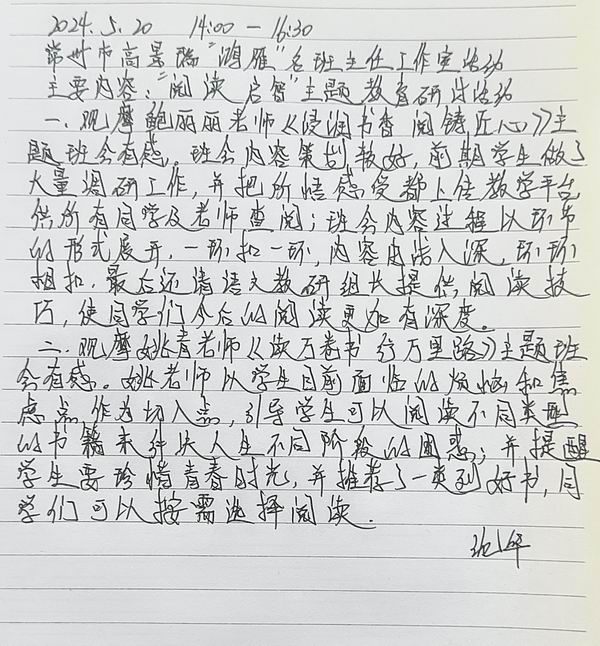 2024.5.20 14:00 — 16:30
常州市高景瑞“鸿雁”名班主任工作室活动
主要内容:“阅读 启智”主题教育研讨活动
一、观摩鲍丽丽老师《浸润书香 阅铸匠心》主
题班会有感。班会内容策划较好,前期学生做了
大量调研工作,并把所悟感受都上传教学平台
供所有同学及老师查阅;班会内容过程以环节
的形式展开,一环扣一环,内容由浅入深,环环
相扣,最后还请语文教研组长提供阅读技
巧,使同学们今后的阅读更加有深度。
二、观摩姚青老师《读万卷书 行万里路》主题班
会有感。姚老师以学生目前面临的烦恼和焦
虑点,作为切入点,引导学生可以阅读不同类型
的书籍来解决人生不同阶段的困惑;并提醒
学生要珍惜青春时光,并推荐了一类列好书,同
学们可以按需选择阅读.